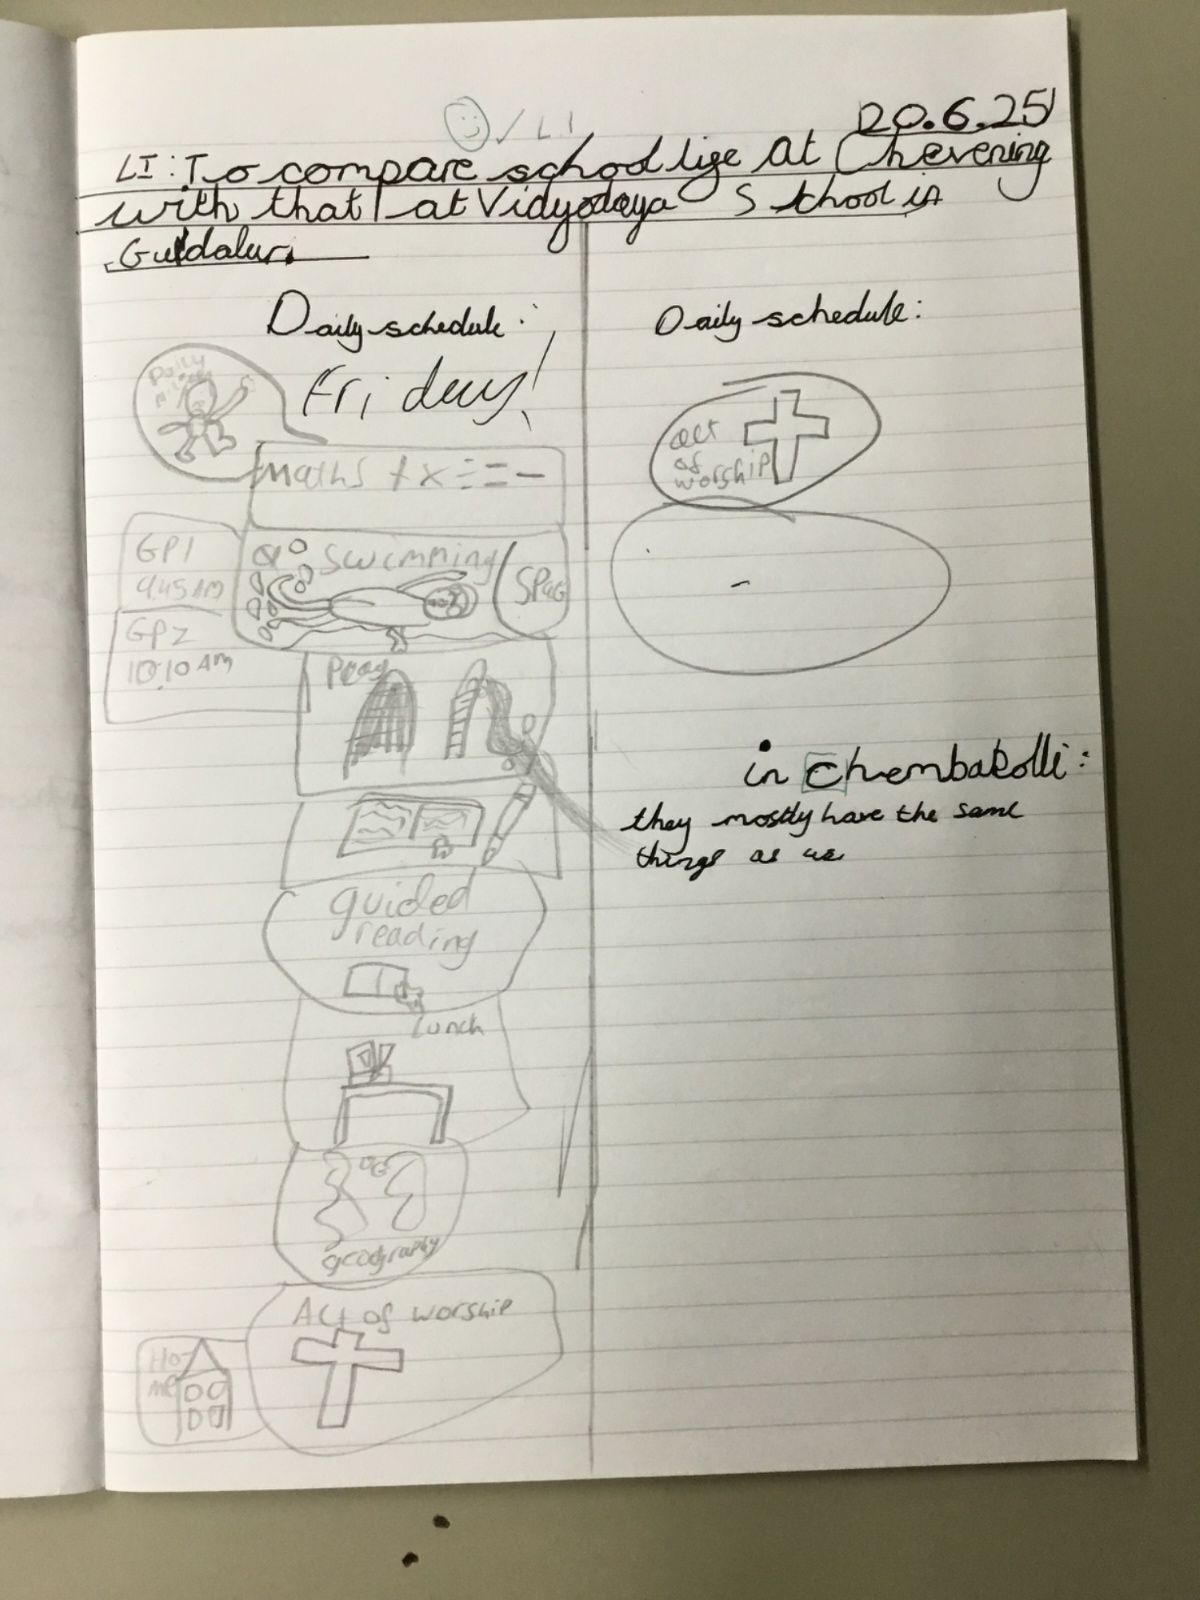 ✓ LI
20.6.25
LI: To compare school life at Chevening
with that at Vidyodaya School in
Gudalur.
Daily schedule:
Friday!
Daily
maths + x ÷ = -
GP1
9:45 AM
swimming
SPaG
GP2
10:10 AM
Play
guided
reading
Lunch
geography
Act of worship
Ho-
me
Daily schedule:
act
of
worship
in Chembakolli:
they mostly have the same
things as us